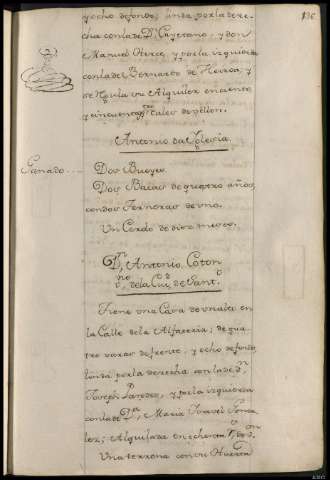 136
y ocho de fondo; linda por la dere-
cha con la de Dn. Cayetano, y don
Manuel Otero, y por la izquierda
con la de Bernardo de Neira; y
se regula su Alquiler en ciento
y cinquenta rs. de vellon.
Antonio da Yglesia
Ganado
Dos Bueyes
Dos Bacas de quatro años,
con dos Terneras de uno.
Un Cerdo de diez meses.
Dn. Antonio Coton
vno. de la Ciud. de Santo.
Tiene una Casa de un alto en
la Calle de la Alfareria; de qua-
tro varas de frente, y ocho de fondo,
linda por la derecha con la de dn.
Joseph Pardo, y por la izquierda
con la de Da. Maria Isavel
Alquilada en ochenta rs. de vn.
Una terrona con su Huerta